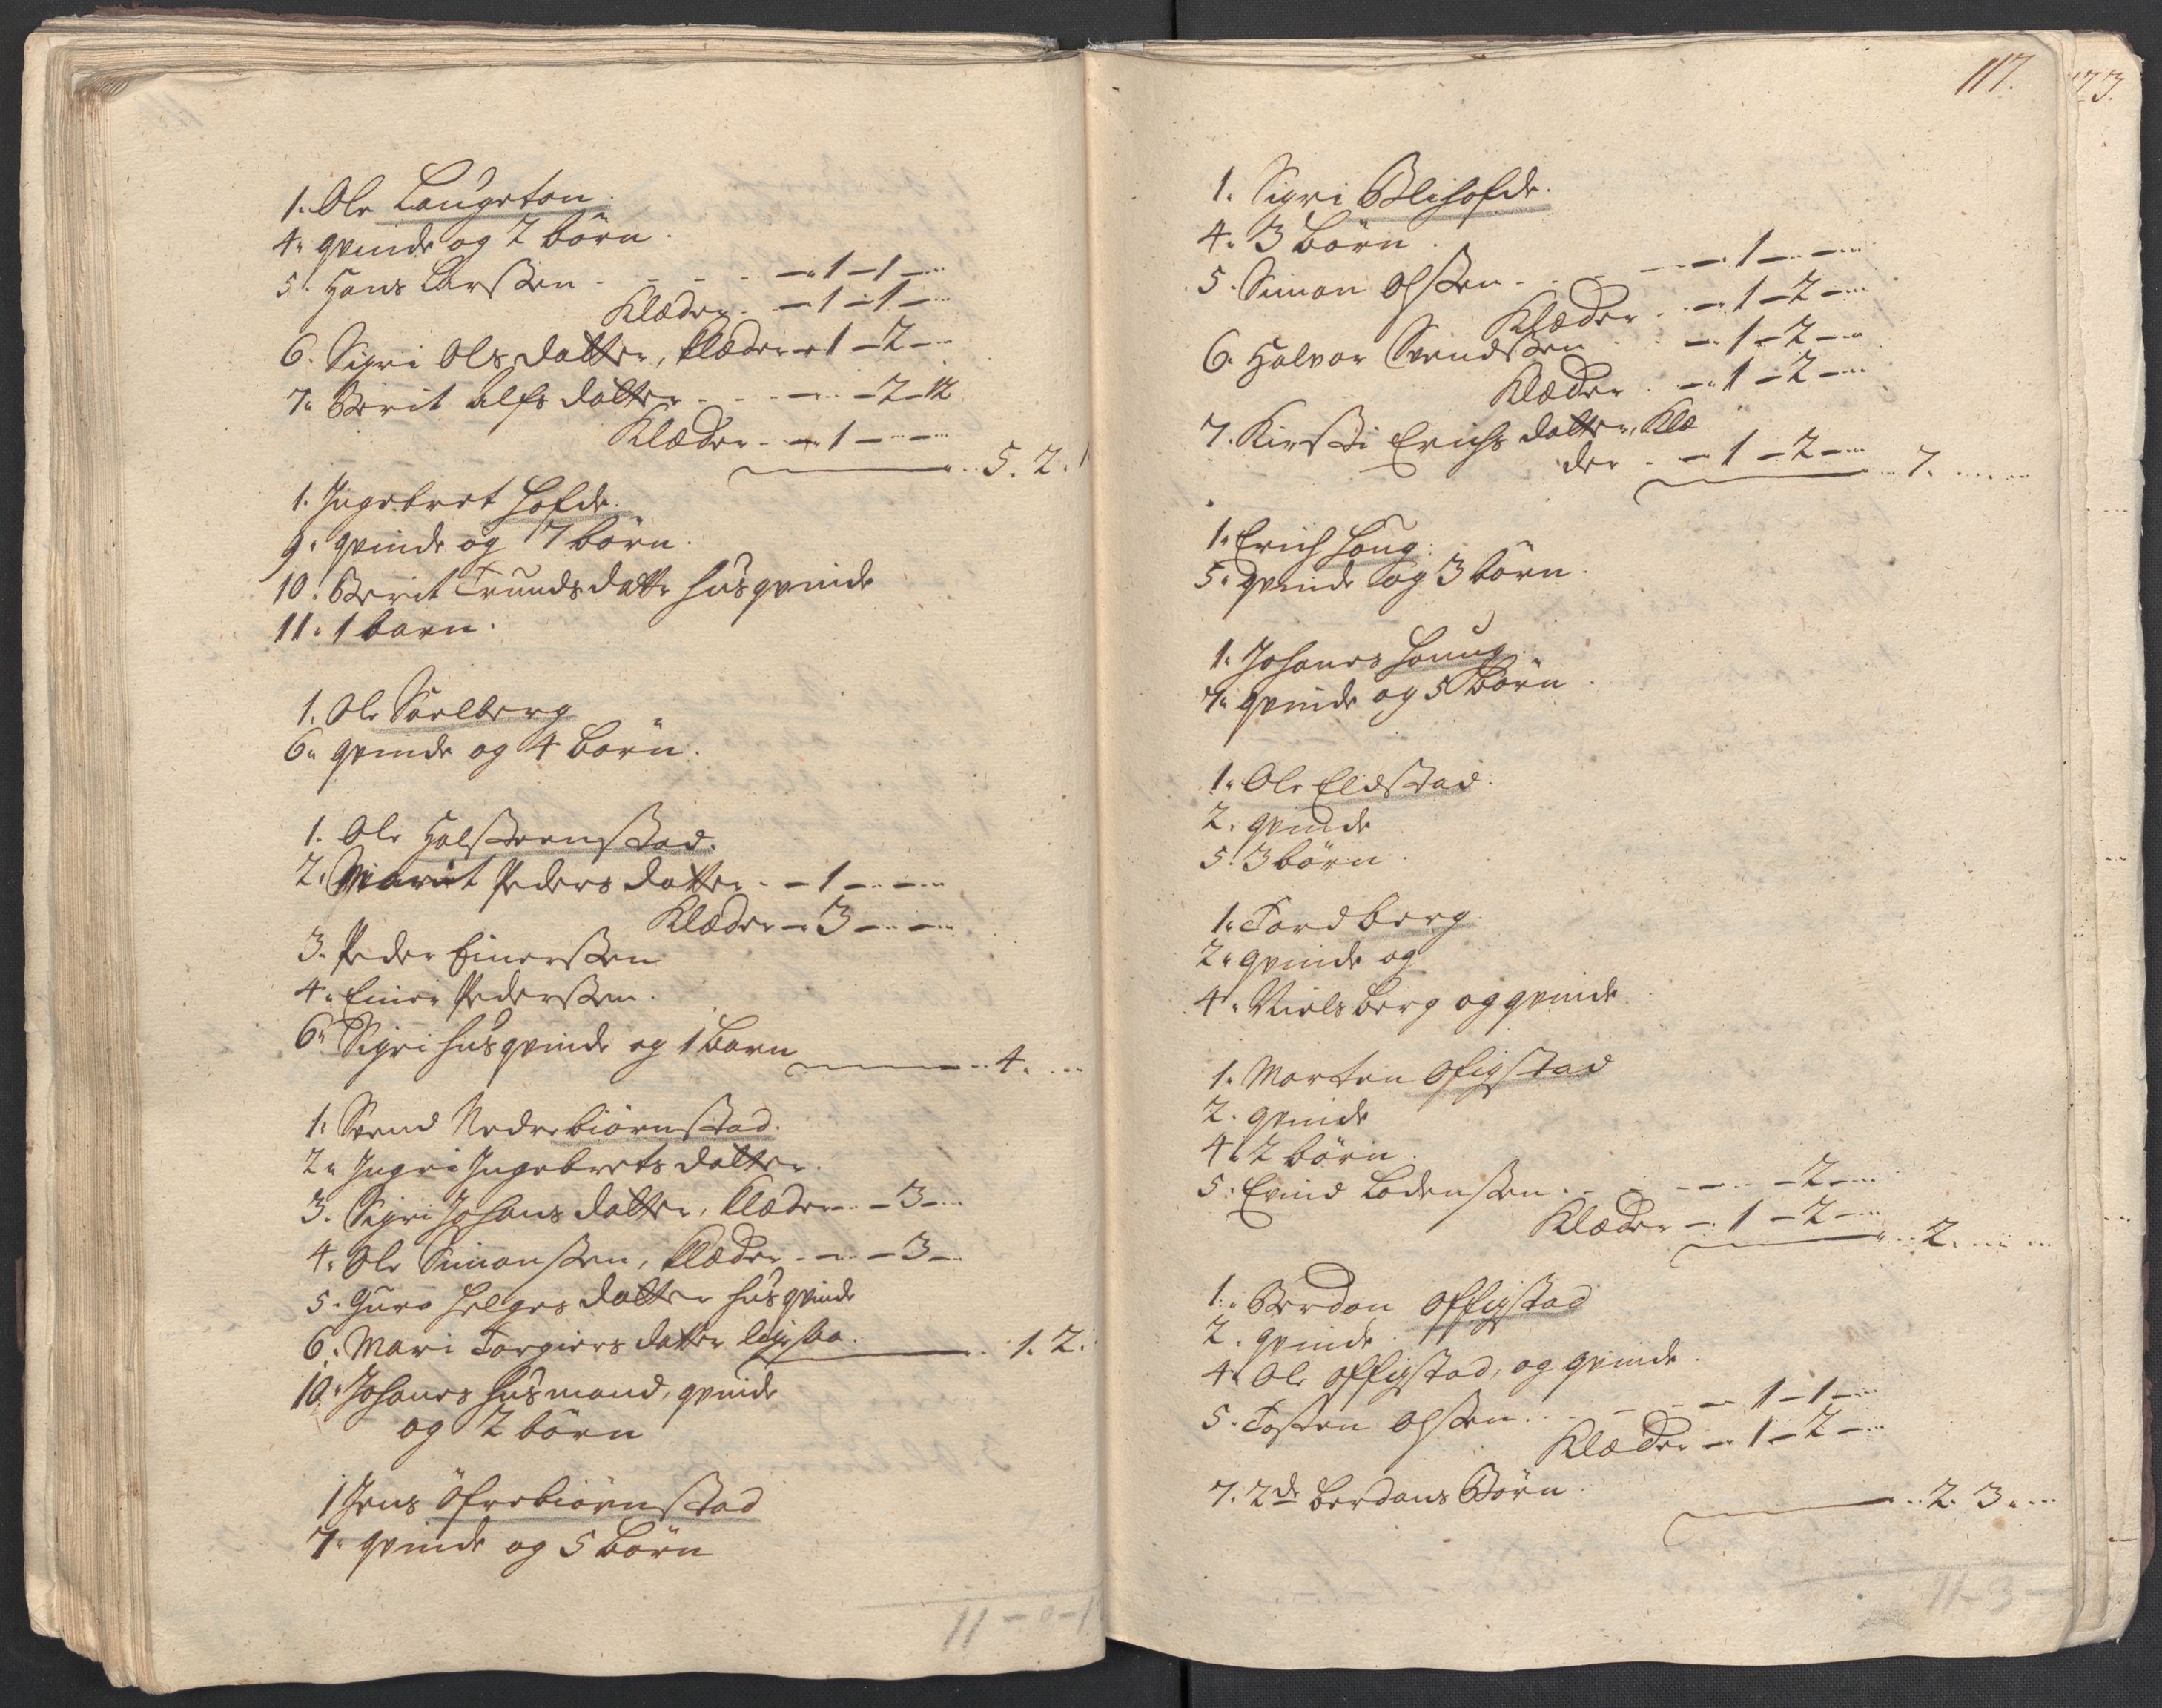 1. Ole Laugeton.
4. qvinde og 2 börn.
5. Hans Larssen - - - - - 1 - 1 -
Klæder - 1 - 1 -
6. Sigri Olsdatter, klæder - 1 - 2 -
7. Berit Alfsdatter - - - - 2 - 12
Klæder - - 1 - -
5. 2. 1
1. Ingebret Hofde.
9. qvinde og 7 börn.
10. Berit Trundsdatt. husqvinde
11. 1 barn.
1. Ole Sörlberg
6. qvinde og 4 börn.
1. Ole Holsteenstad.
2. Marit Pedersdatter - - 1 - -
Klæder - 3 - -
3. Peder Einerssen
4. Einer Pederssen.
6. Sigri husqvinde og 1 barn
4. ...
1. Svend Nedrebiörnstad.
2. Ingri Ingebretsdatter.
3. Sigri Johansdatter, klæder - - 3 -
4. Ole Simonssen, klæder - - - 3 -
5. Guro Helgesdatter husqvinde
6. Mari Torgiersdatter
1. 2.
10. Johanes husmand, qvinde
og 2 börn
1 Jens Öfrebiörnstad
7. qvinde og 5 börn
11 - 0 - 1
117.
1. Sigri Blihofde.
4. 3 börn.
5. Simon Olssen - - - - 1 - -
Klæder - - 1 - 2 -
6. Halvor Svendssen - - 1 - 2 -
Klæder - - 1 - 2 -
7. Kirsti Erichsdatter, Klæ
der - - 1 - 2 -
7. ...
1. Erich Houg.
5. qvinde og 3 börn.
1. Johanes Houug.
7. qvinde og 5 börn.
1. Ole Eldstad.
2. qvinde
5. 3 börn.
1. Tord berg.
2. qvinde og
4. Niels berg og qvinde.
1. Morten Ofigstad
2. qvinde
4. 2 börn.
5. Evind Lodenssen. - - - - 2 -
Klæder - 1 - 2 -
2. ...
1. Berdon Offigstad
2. qvinde.
4. Ole Offigstad, og qvinde.
5. Tosten Olssen. - - - 1 - 1 -
Klæder - 1 - 2 -
7. 2de Berdons Börn.
2. 3. ...
11 - 3 -
173.